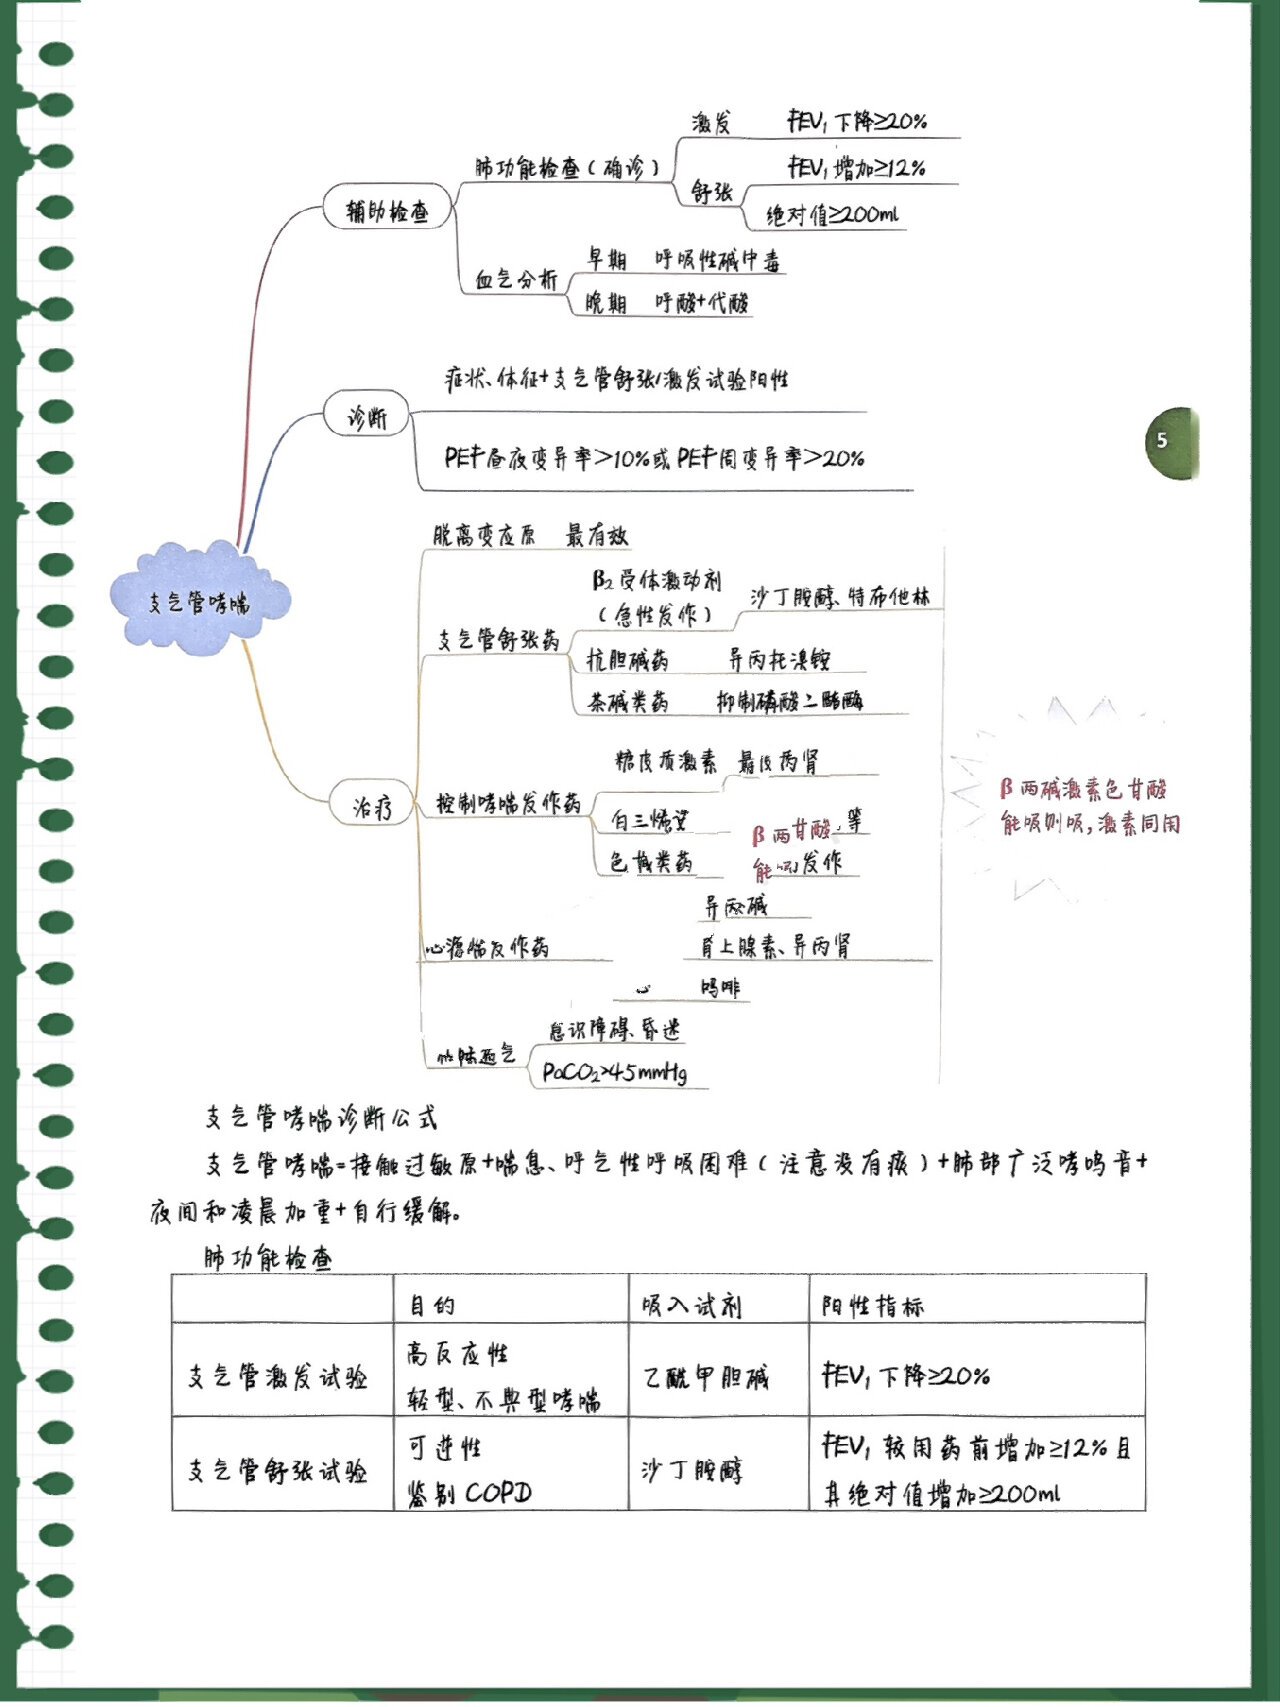 激发 FEV₁下降≥20%
肺功能检查（确诊）
FEV₁增加≥12%
舒张
辅助检查
绝对值≥200ml
早期 呼吸性碱中毒
血气分析
晚期 呼酸+代酸
症状、体征+支气管舒张/激发试验阳性
诊断
5
PEF昼夜变异率>10%或PEF周变异率>20%
脱离变应原 最有效
β₂受体激动剂
（急性发作）
沙丁胺醇、特布他林
支气管哮喘
支气管舒张药
抗胆碱药 异丙托溴铵
茶碱类药 抑制磷酸二酯酶
糖皮质激素
β两碱激素色甘酸
能吸则吸,激素同用
治疗
控制哮喘发作药
白三烯
β两甘酸 等
色 类药
能 发作
异丙 碱
作药
肾上腺素、异丙肾
吗啡
意识障碍、昏迷
PaCO₂>45mmHg
支气管哮喘诊断公式
支气管哮喘=接触过敏原+喘息、呼气性呼吸困难（注意没有痰）+肺部广泛哮鸣音+
夜间和凌晨加重+自行缓解。
肺功能检查
目的 吸入试剂 阳性指标
支气管激发试验 高反应性 轻型、不典型哮喘 乙酰甲胆碱 FEV₁下降≥20%
支气管舒张试验 可逆性 鉴别COPD 沙丁胺醇 FEV₁较用药前增加≥12%且
其绝对值增加≥200ml